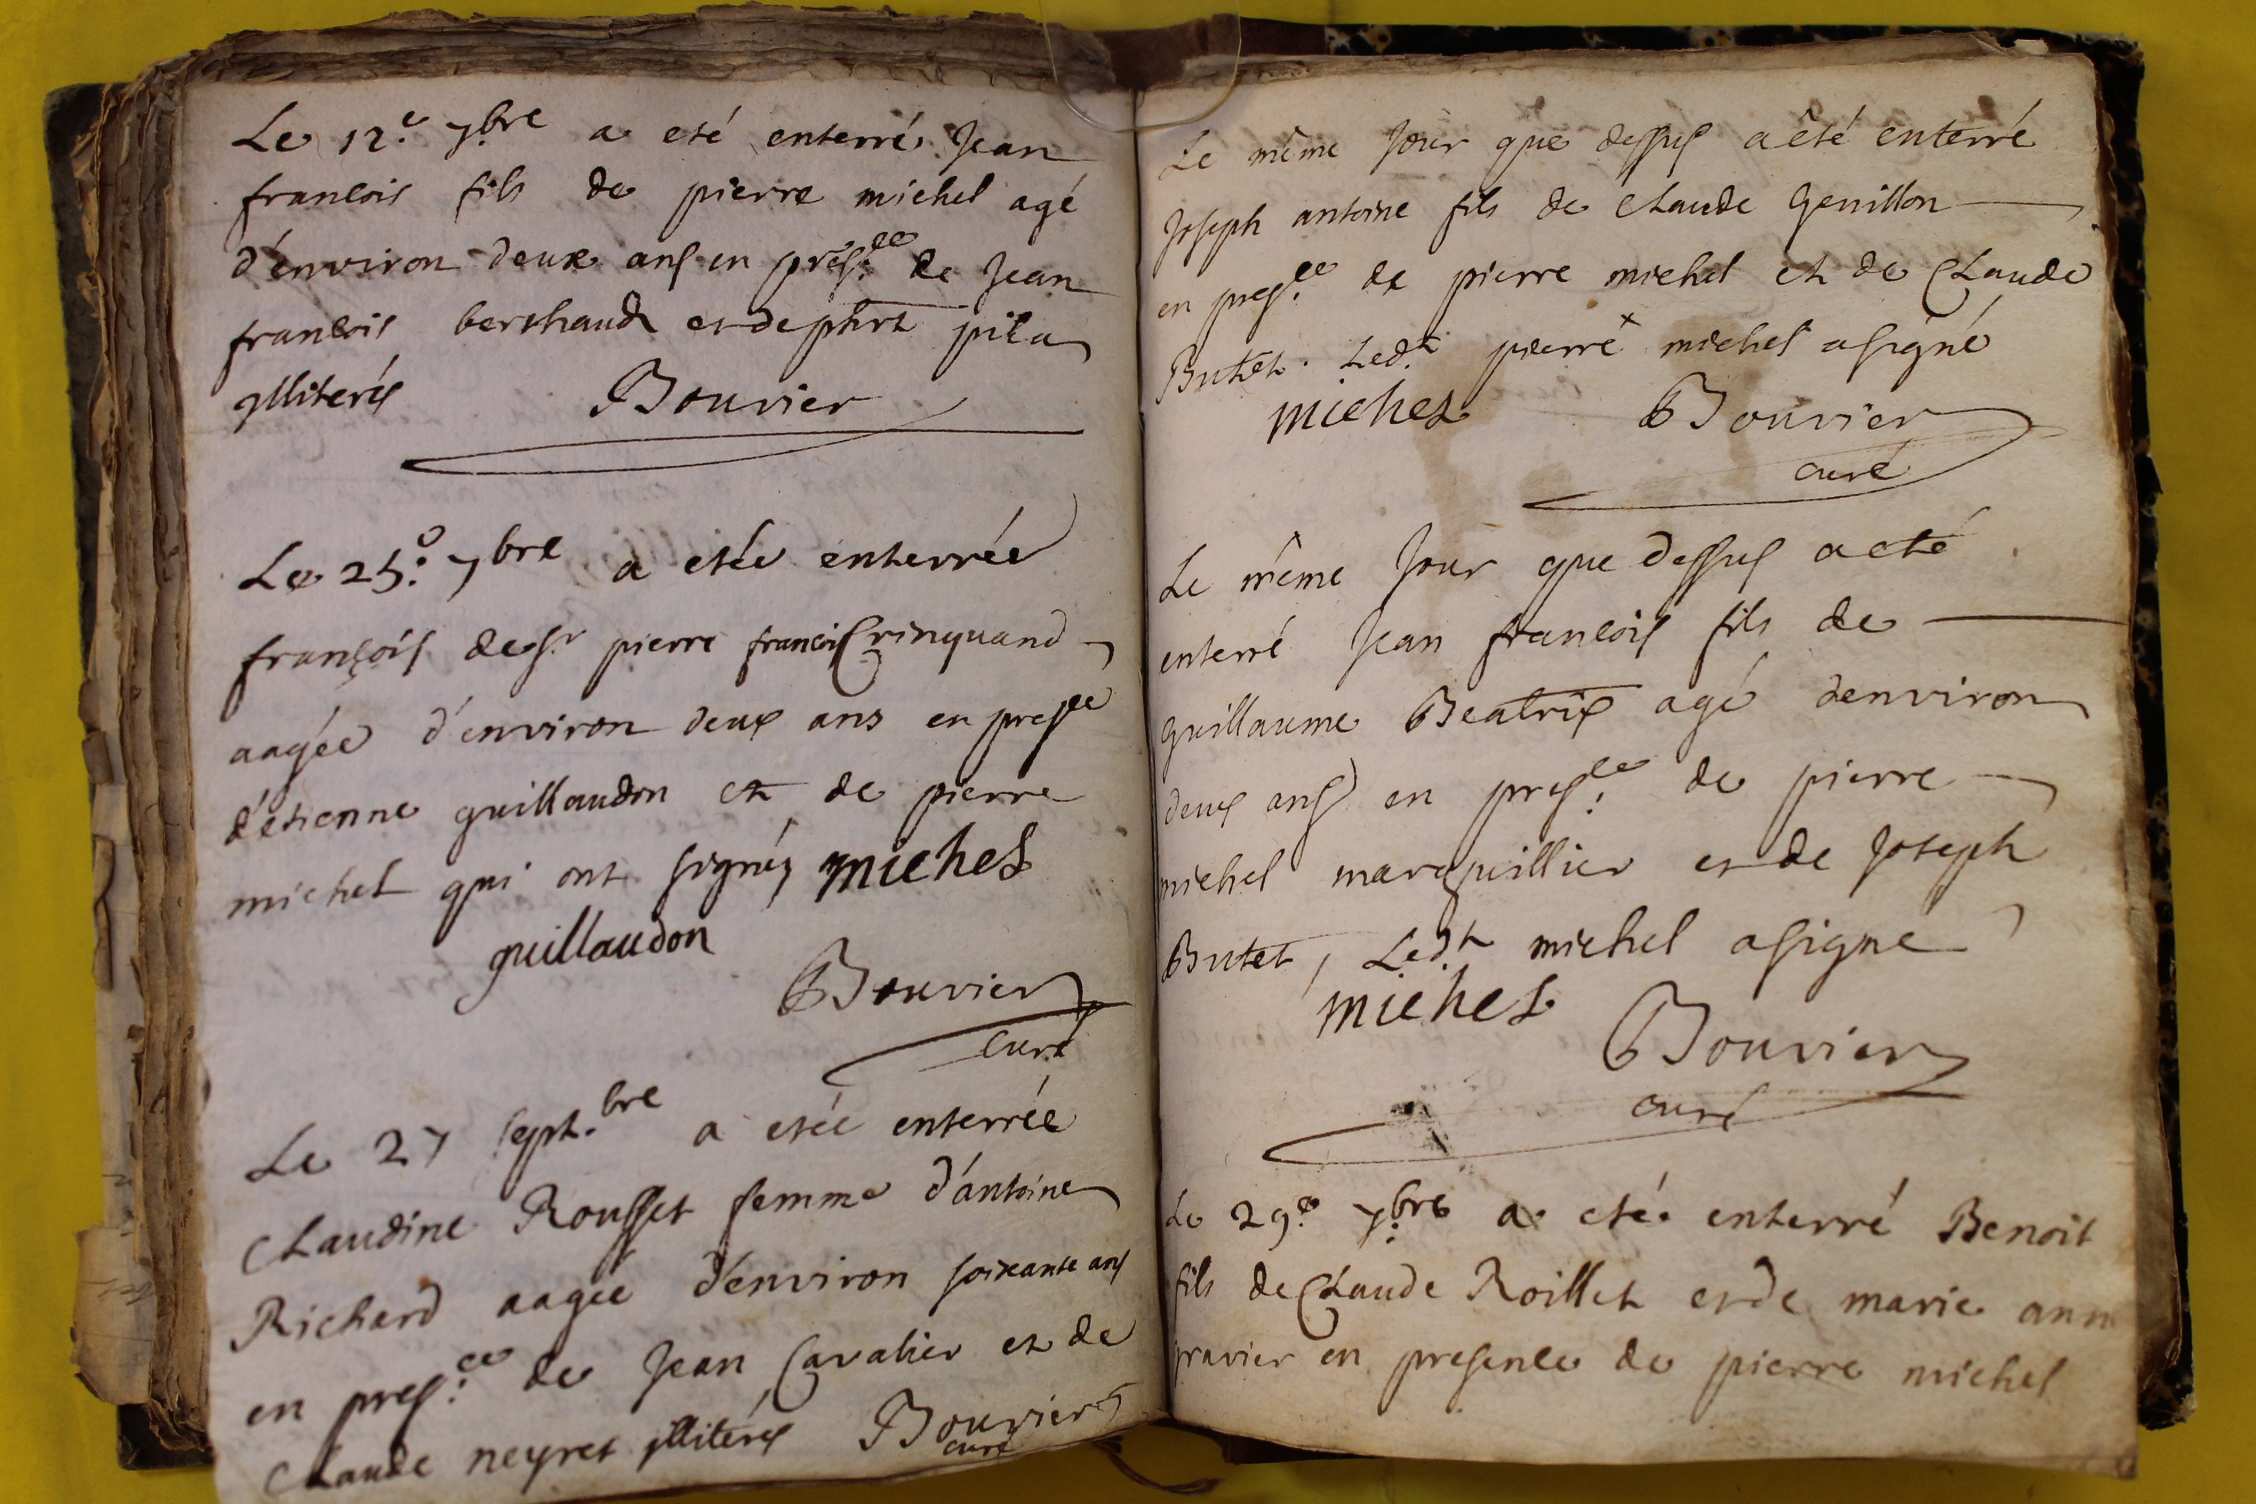 Le 12.e 7bre a eté enterré Jean
francois fils de pierre michel agé
d'environ deux ans en pres.ce de Jean
francois berthaud et de phrt pila
illiterés Bouvier
Le 25.e 7bre a etée enterrée
françois de sr pierre francois Crinquand
aagée d'environ deux ans en presce
d'etienne guillaudon et de pierre
michel qui ont signés michel
guillaudon
Bouvier
curé
Le 27 sept.bre a etée enterrée
Claudine Rousset femme d'antoine
Richard aagée d'environ soixante ans
en pres.ce de Jean Cavalier et de
Claude neyret illiterés Bouvier
curé
Le même Jour que dessus a été enterré
Joseph antoine fils de Claude Genillon
en pres.ce de pierre michel et de Claude
Butet. Led.t pierre michel a signé
michel Bouvier
curé
Le même Jour que dessus a eté
enterré Jean francois fils de
guillaume Beatrix agé denviron
deux ans en pres.ce de pierre
michel marguillier et de Joseph
Butet, Led.t michel a signe
michel
Bouvier
curé
Le 29.e 7.bre a eté enterré Benoit
fils de Claude Roillet et de marie ann
gravier en presence de pierre michel